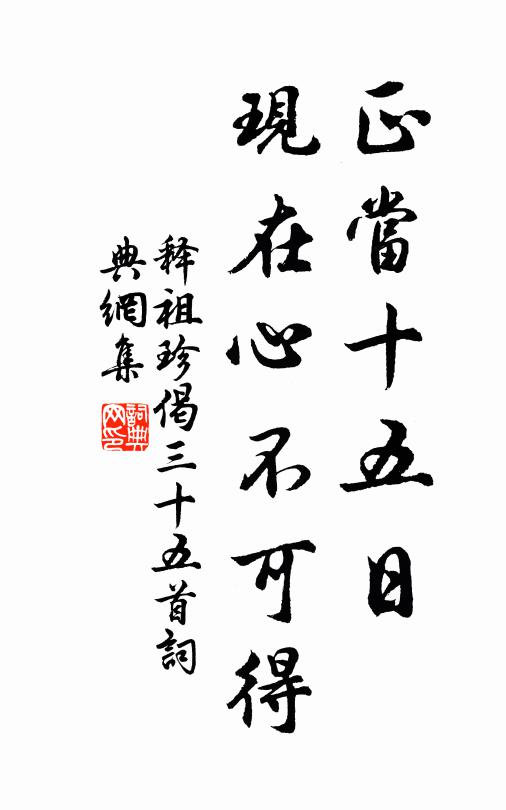 正當十五日
現在心不可得
释祖珍偈三十五首詞
典網集
詞典
网印